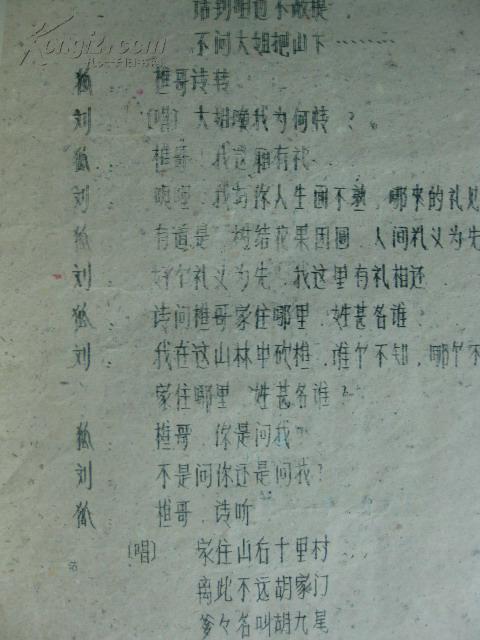 话到咀边不敢提
不问大姐把山下………
狐 樵哥请转
刘 〔唱〕大姐唤我为何转？
狐 樵哥，我这厢有礼
刘 噢哑，我与你人生面不熟，哪来的礼见
狐 有道是 树结花果团圆，人间礼义为先
刘 好个礼义为先，我这里有礼相还
狐 请问樵哥家住哪里，姓甚名谁
刘 我在这山林中砍樵，谁个不知，哪个不
家住哪里 姓甚名谁？
狐 樵哥，你是问我？
刘 不是问你还是问我？
狐 樵哥，请听
〔唱〕 家住山右十里村
离此不远胡家门
爹々名叫胡九尾